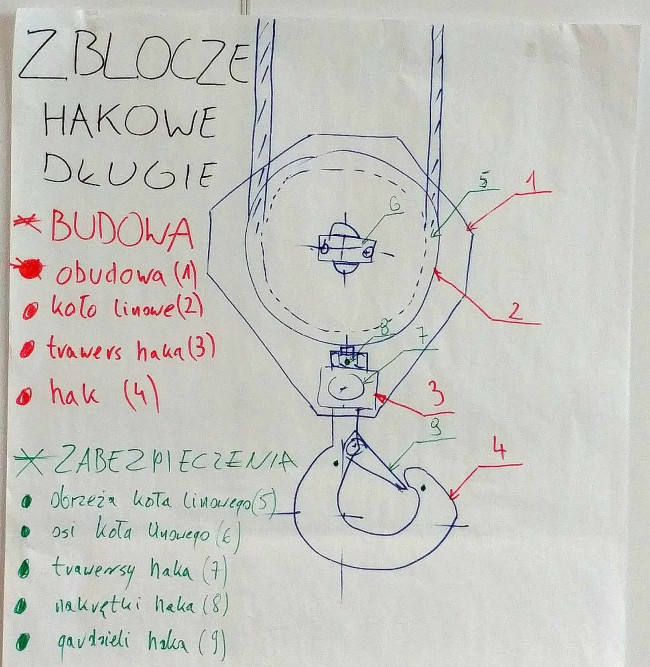 ZBLOCZE
HAKOWE
DŁUGIE
BUDOWA
obudowa (1)
koło linowe (2)
trawers haka (3)
hak (4)
ZABEZPIECZENIA
obrzeża koła linowego (5)
osi koła linowego (6)
trawersy haka (7)
nakrętki haka (8)
gardzieli haka (9)
5
1
6
2
8
7
3
9
4